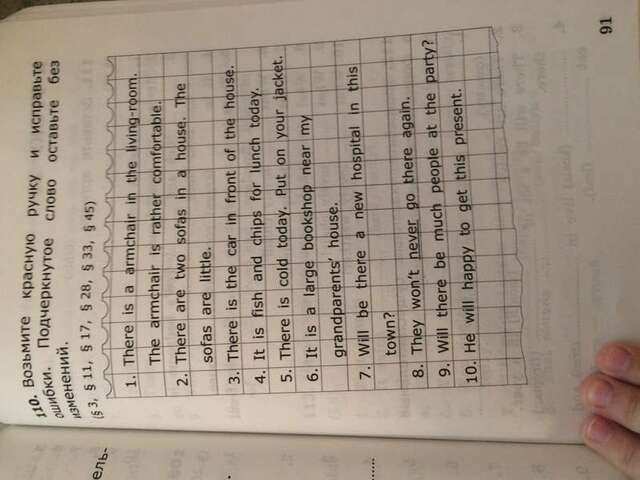 110. Возьмите красную ручку и исправьте
ошибки. Подчеркнутое слово оставьте без
изменений.
(§ 3, § 11, § 17, § 28, § 33, § 45)
ель-
1. There is a armchair in the living-room.
The armchair is rather comfortable.
2. There are two sofas in a house. The
sofas are little.
3. There is the car in front of the house.
4. It is fish and chips for lunch today.
5. There is cold today. Put on your jacket.
6. It is a large bookshop near my
grandparents’ house.
7. Will be there a new hospital in this
town?
8. They won’t never go there again.
9. Will there be much people at the party?
10. He will happy to get this present.
91